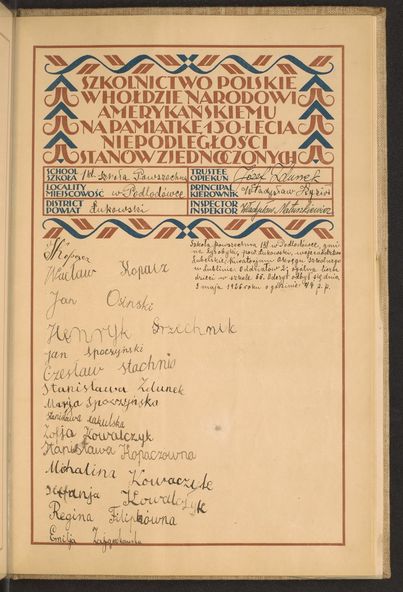 SZKOLNICTWO POLSKIE
W HOŁDZIE NARODOWI
AMERYKAŃSKIEMU
NA PAMIĄTKĘ 150-LECIA
NIEPODLEGŁOŚCI
STANÓW ZJEDNOCZONYCH
SCHOOL
SZKOŁA 1kl. Szkoła Powszechna
TRUSTEE
OPIEKUN Józef Zdunek
LOCALITY
MIEJSCOWOŚĆ w Podlodówce
PRINCIPAL
KIEROWNIK Władysław
DISTRICT
POWIAT Łukowski
INSPECTOR
INSPEKTOR Władysław Matuszkiewicz
Szkoła powszechna 1kl. w Podlodówce, gmi-
na pow. Łukowski, województwo
Lubelskie, Kuratorjum Okręgu Szkolnego
w Lublinie. Oddziałów 2; ogólna liczba
dzieci w szkole 55. Odczyt odbył się dnia
3 maja 1926 roku o godzinie p.p.
Kopacz
Wacław Kopacz
Jan Osiński
Henryk Grzechnik
Jan Spoczyński
Czesław Stachnio
Stanisława Zdunek
Marja Spoczyńska
Stanisława Łakulska
Zofja Kowalczyk
Stanisława Kopaczówna
Michalina Kowalczyk
Stefanja Kowalczyk
Regina Filipkówna
Emilja